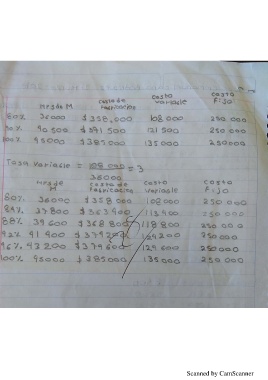 Hrs de M costo de Fabricacion costo variable costo Fijo
80% 36000 $358.000 108 000 250 000
90% 40 500 $371 500 121 500 250 000
100% 45000 $385000 135 000 250000
Tasa Variable = 108 000 = 3
36000
Hrs de M costo de Fabricacion costo Variable costo Fijo
80% 36000 $358000 108000 250 000
84% 37 800 $363 400 113 400 250 000
88% 39 600 $368 800 118 800 250 000
92% 41 400 $374200 124 200 250000
96% 43 200 $379600 129 600 250000
100% 45000 $385000 135 000 250 000
Scanned by CamScanner